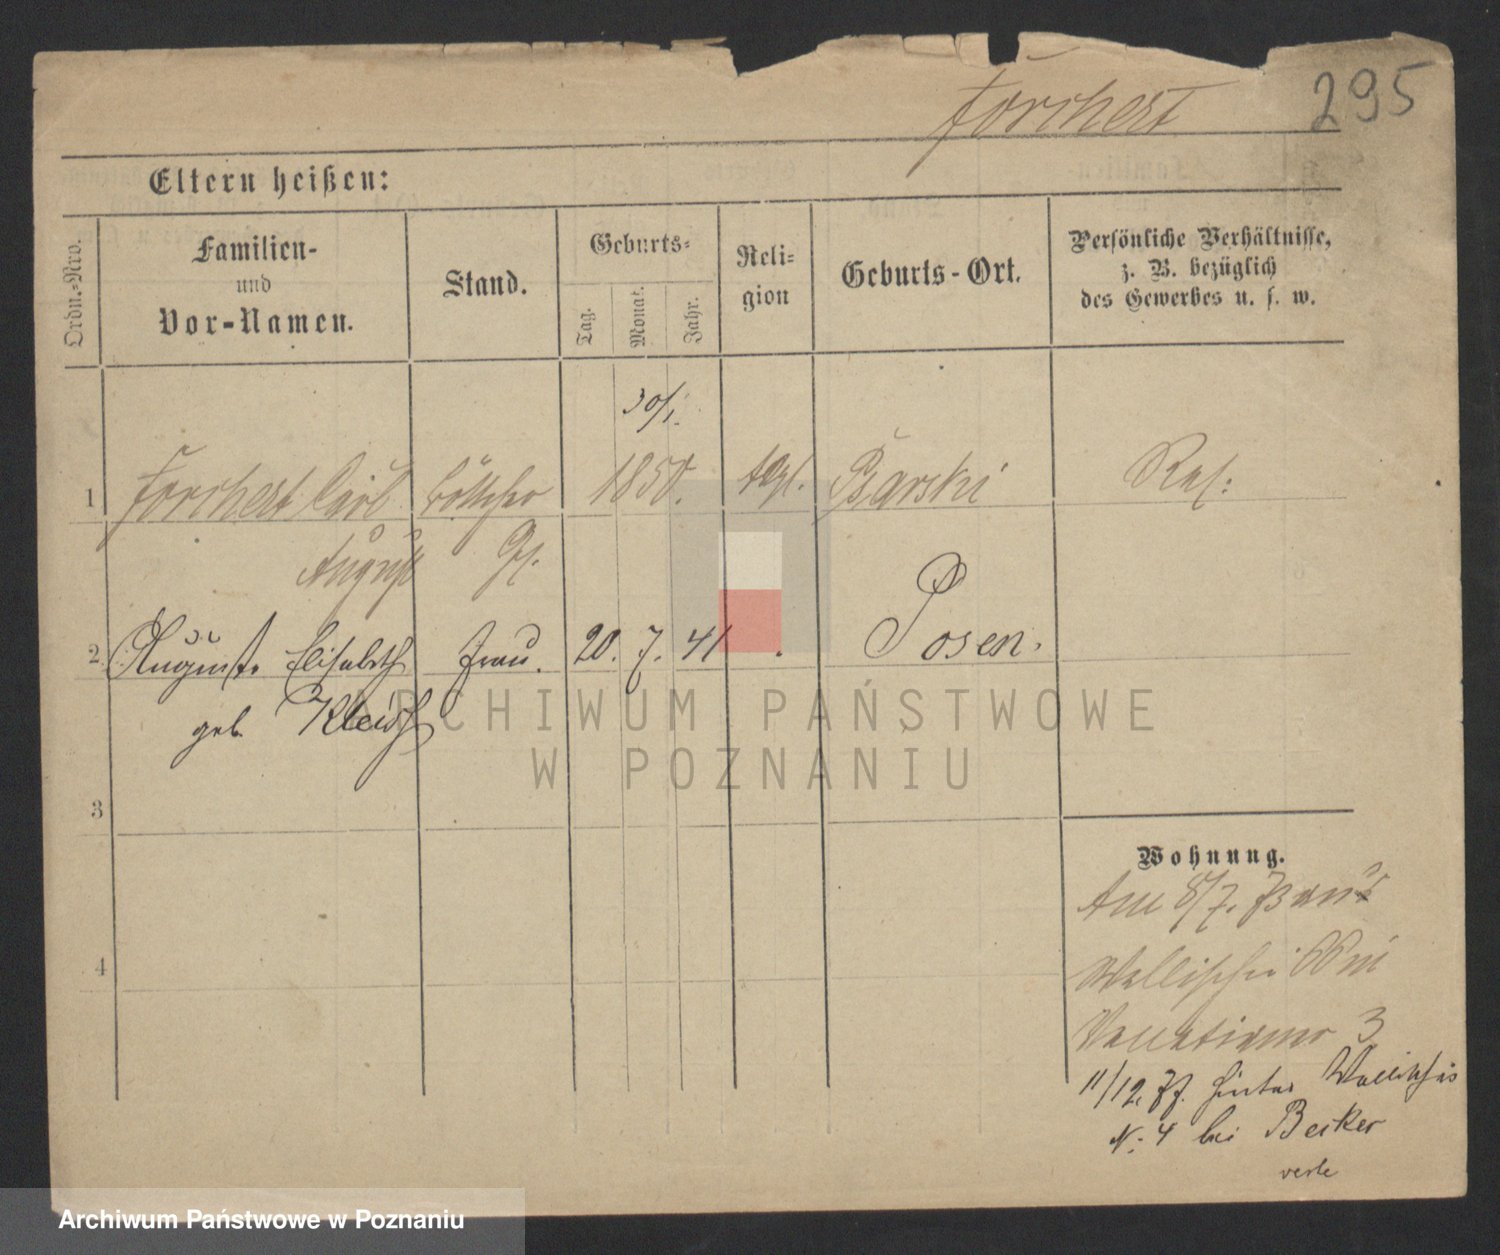 Forchert 295
Eltern heißen:
Ordn.-Nro.
Familien-
und
Vor-Namen.
Stand.
Geburts-
Tag.
Monat.
Jahr.
Reli-
gion
Geburts-Ort.
Persönliche Verhältnisse,
z. B. bezüglich
des Gewerbes u. s. w.
30/1.
1 Forchert Carl Böttcher 1850. Psarski Ref:
August
2 Auguste Elisabeth Frau. 20. 7. 41 Posen.
geb.
3
Wohnung.
Am 8/7.
4 Wallischei
3
11/12. 77. hinter Wallischei
N: 4 bei Becker
ARCHIWUM PAŃSTWOWE
W POZNANIU
Archiwum Państwowe w Poznaniu